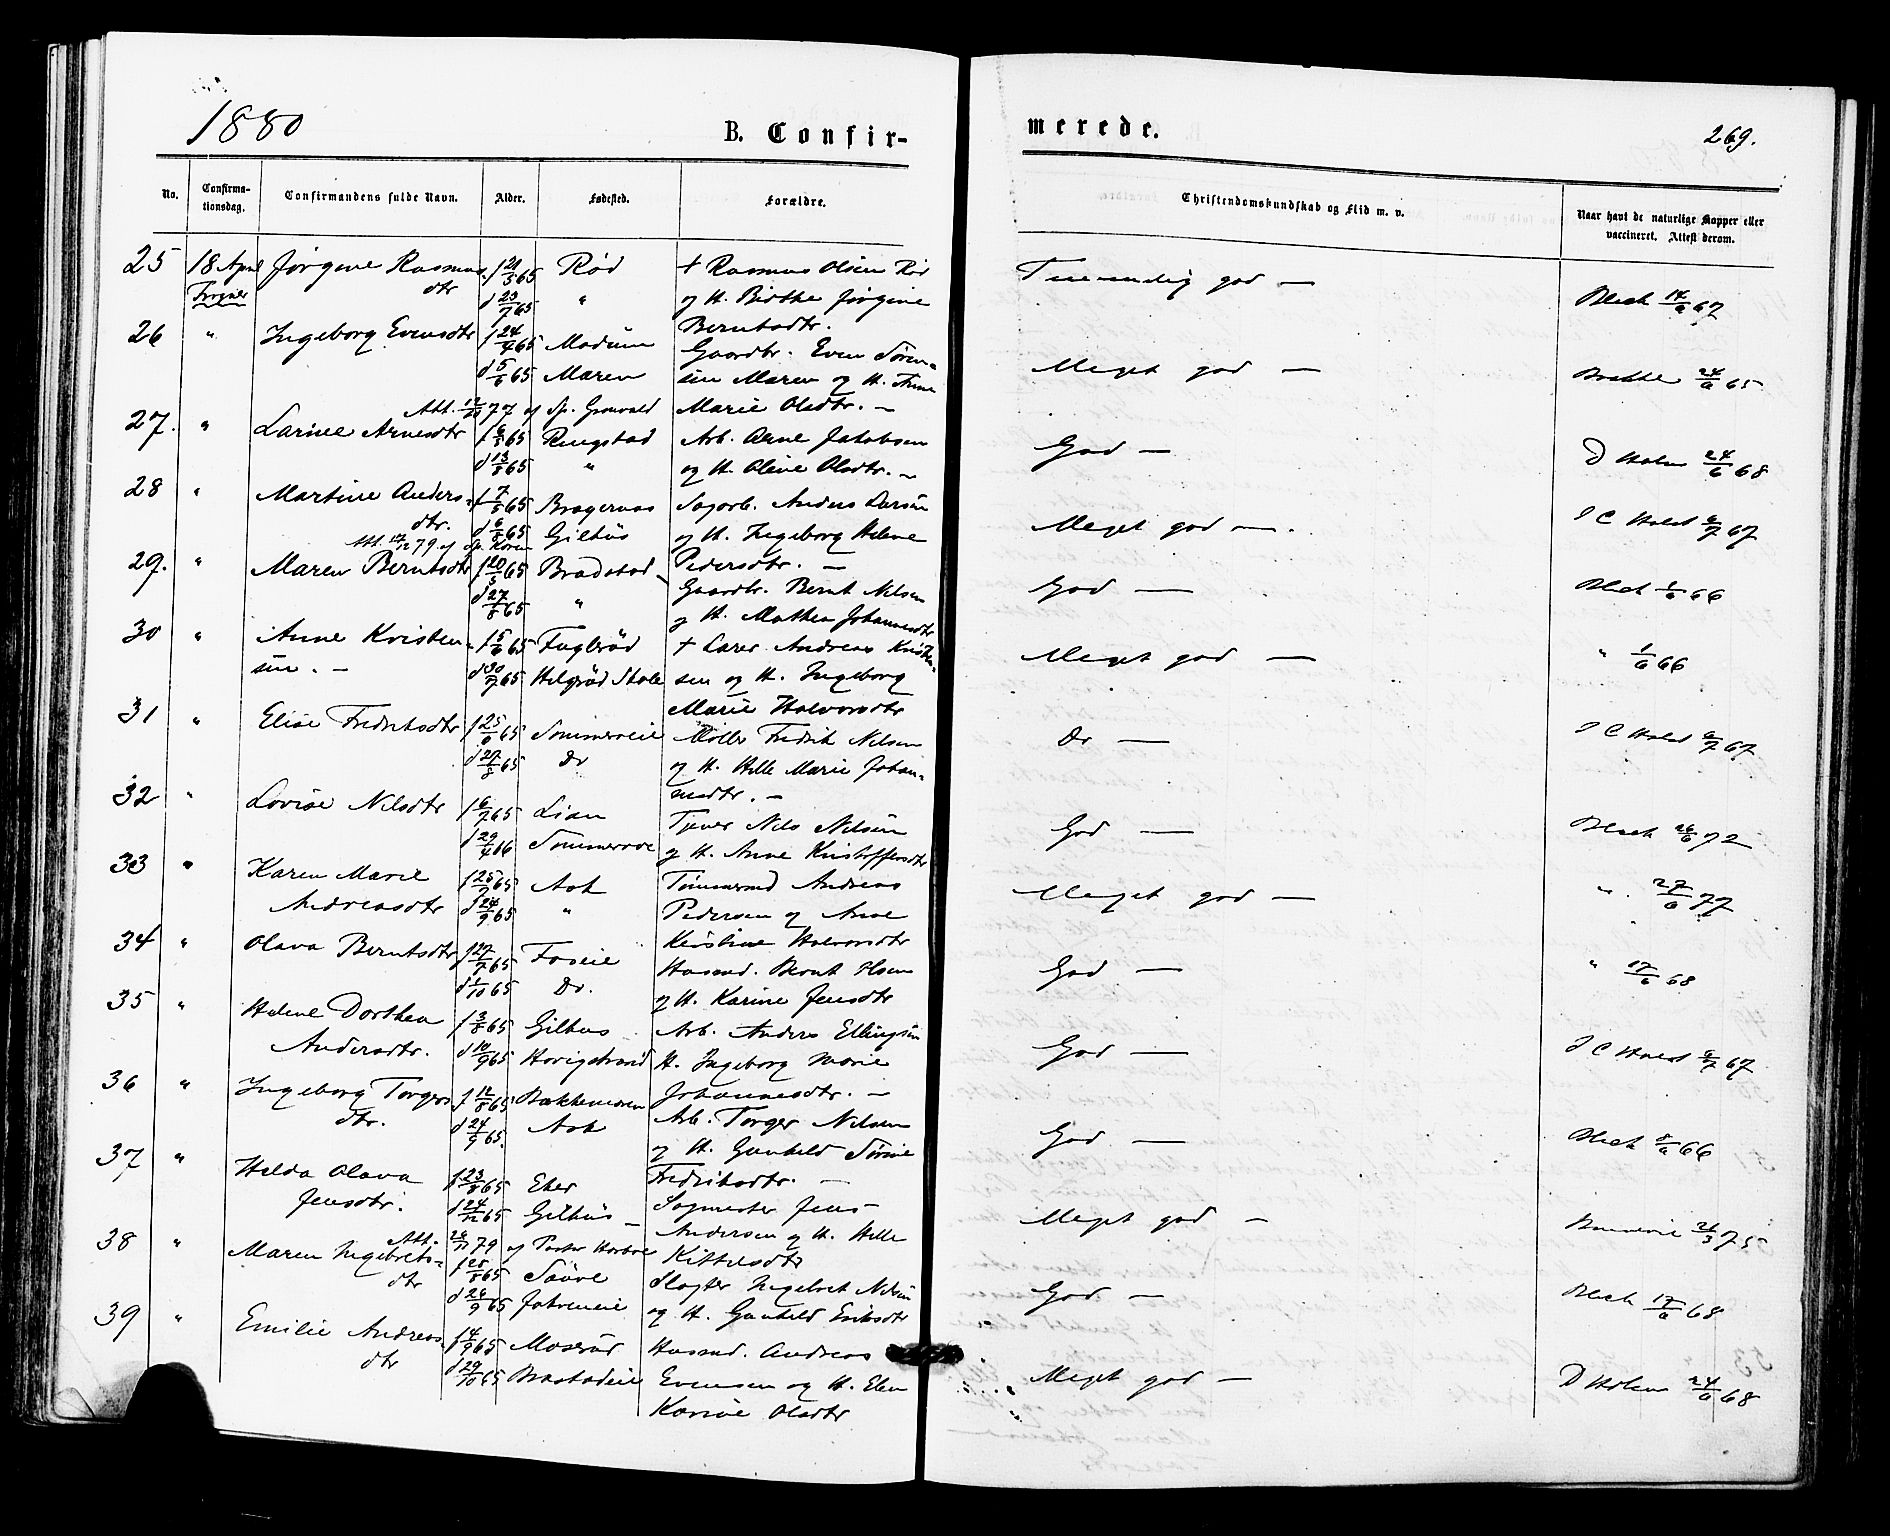 1880
B. Confir-
merede.
269.
No.
Confirma-
tionsdag.
Confirmandens fulde Navn.
Alder.
Fødested.
Forældre.
Christendomskundskab og Flid m. v.
Naar havt de naturlige Kopper eller
vaccineret. Attest derom.
25 18 April Jørgine Rasmus- f 21/5 65 Rød + Rasmus Olsen Rød
dtr d 23/7 65 " og H. Birthe Jørgine
Berntsdtr.
God —
Blech 14/6 67
26 " Ingeborg Evensdtr f 24/4 65 Modum Gaardbr. Even Søren-
d 5/6 65 Maren sen Maren og H.
Marie Olsdtr. —
Meget god —
24/6 65
Att. 12/10 77 af Sp. Grønvold
27. " Larine Arnesdtr f 6/5 65 Ringstad Arb. Arne Jakobsen
d 13/8 65 " og H. Oline Olsdtr. —
God —
D Holm 24/6 68
28 " Martine Anders- f 7/5 65 Bragernes Sagarb. Anders Larsen
dtr. d 6/8 65 Gilhus og H. Ingeborg Helene
Pedersdtr. —
Meget god —.
J C Holst 6/7 67
Att. 12/12 79 af Sp. Koren
29. " Maren Berntsdtr f 20/5 65 Bradstad Gaardbr. Bernt Nilsen
d 27/8 65 " og H. Mathea Johannesdtr
God —
Blech 1/6 66
30 " Anne Kristen- f 5/6 65 Fuglerød + Lærer Andreas Kristen-
sen. — d 30/7 65 Helgerød Skole sen og H. Ingeborg
Marie Halvorsdtr
Meget god —
" 1/6 66
31 " Elise Fredriksdtr f 25/6 65 Sommerveie Møller Fredrik Nilsen
d 27/8 65 Do og H. Helle Marie Johan-
nesdtr. —
Do —
J C Holst 6/7 67
32 " Lovise Nilsdtr f 6/7 65 Lian Tjener Nils Nilsen
d 29/4 66 og H. Anne Kristoffersdtr
God —
Blech 26/6 72
33 " Karen Marie f 25/7 65 Ask Tømmermd Andreas
Andreasdtr d 24/9 65 " Pedersen og Anne
Kirstine Halvorsdtr
Meget god —
" 27/6 77
34 " Olava Berntsdtr f 27/7 65 Foseie Husmd. Bernt Olsen
d 1/10 65 Do. og H. Karine Jensdtr
God —
" 17/6 68
35 " Helene Dorthea f 3/8 65 Gilhus Arb. Anders Ellingsen
Andersdtr. d 10/9 65 Horigstrand H. Ingeborg Marie
Johannesdtr. —
God —
J C Holst 6/7 67
36 " Ingeborg Torgers f 12/8 65 Bækkemoen Arb. Torger Nilsen
dtr. d 24/9 65. Ask og H. Gunhild Sørine
Fredriksdtr. —
God —
Blech 8/6 66
37 " Helda Olava f 23/8 65 Eker Sagmester Jens
Jensdtr. d 24/12 65 Gilhus Andersen og H. Helle
Kittelsdtr
Meget god —
26/3 75
Att. 28/11 79 af Pastor
38 " Maren Ingebrets- f 28/8 65 Slagter Ingebret Nilsen
dtr d 26/9 65 og H. Gunhild Eriksdtr
God —
Blech 17/6 68
39 " Emilie Andreas- f 4/9 65 Moserud Husmd. Andreas
dtr d 29/10 65 Brastadeie Evensen og H. Elen
Karine Olsdtr
Meget god —
D Holm 24/6 68